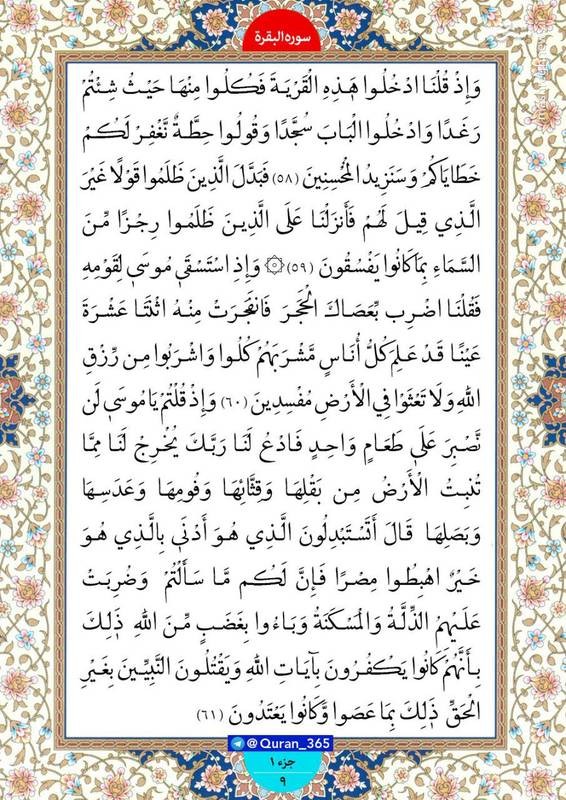 سوره‌البقرة
وَإِذْ قُلْنَا ادْخُلُوا هَٰذِهِ الْقَرْيَةَ فَكُلُوا مِنْهَا حَيْثُ شِئْتُمْ
رَغَدًا وَادْخُلُوا الْبَابَ سُجَّدًا وَقُولُوا حِطَّةٌ نَّغْفِرْ لَكُمْ
خَطَايَاكُمْ وَسَنَزِيدُ الْمُحْسِنِينَ (٥٨) فَبَدَّلَ الَّذِينَ ظَلَمُوا قَوْلًا غَيْرَ
الَّذِي قِيلَ لَهُمْ فَأَنزَلْنَا عَلَى الَّذِينَ ظَلَمُوا رِجْزًا مِّنَ
السَّمَاءِ بِمَا كَانُوا يَفْسُقُونَ (٥٩) ۞ وَإِذِ اسْتَسْقَىٰ مُوسَىٰ لِقَوْمِهِ
فَقُلْنَا اضْرِب بِّعَصَاكَ الْحَجَرَ فَانفَجَرَتْ مِنْهُ اثْنَتَا عَشْرَةَ
عَيْنًا قَدْ عَلِمَ كُلُّ أُنَاسٍ مَّشْرَبَهُمْ كُلُوا وَاشْرَبُوا مِن رِّزْقِ
اللهِ وَلَا تَعْثَوْا فِي الْأَرْضِ مُفْسِدِينَ (٦٠) وَإِذْ قُلْتُمْ يَا مُوسَىٰ لَن
نَّصْبِرَ عَلَىٰ طَعَامٍ وَاحِدٍ فَادْعُ لَنَا رَبَّكَ يُخْرِجْ لَنَا مِمَّا
تُنبِتُ الْأَرْضُ مِن بَقْلِهَا وَقِثَّائِهَا وَفُومِهَا وَعَدَسِهَا
وَبَصَلِهَا قَالَ أَتَسْتَبْدِلُونَ الَّذِي هُوَ أَدْنَىٰ بِالَّذِي هُوَ
خَيْرٌ اهْبِطُوا مِصْرًا فَإِنَّ لَكُم مَّا سَأَلْتُمْ وَضُرِبَتْ
عَلَيْهِمُ الذِّلَّةُ وَالْمَسْكَنَةُ وَبَاءُوا بِغَضَبٍ مِّنَ اللهِ ذَٰلِكَ
بِأَنَّهُمْ كَانُوا يَكْفُرُونَ بِآيَاتِ اللهِ وَيَقْتُلُونَ النَّبِيِّينَ بِغَيْرِ
الْحَقِّ ذَٰلِكَ بِمَا عَصَوا وَّكَانُوا يَعْتَدُونَ (٦١)
@Quran_365
جزء ١
٩